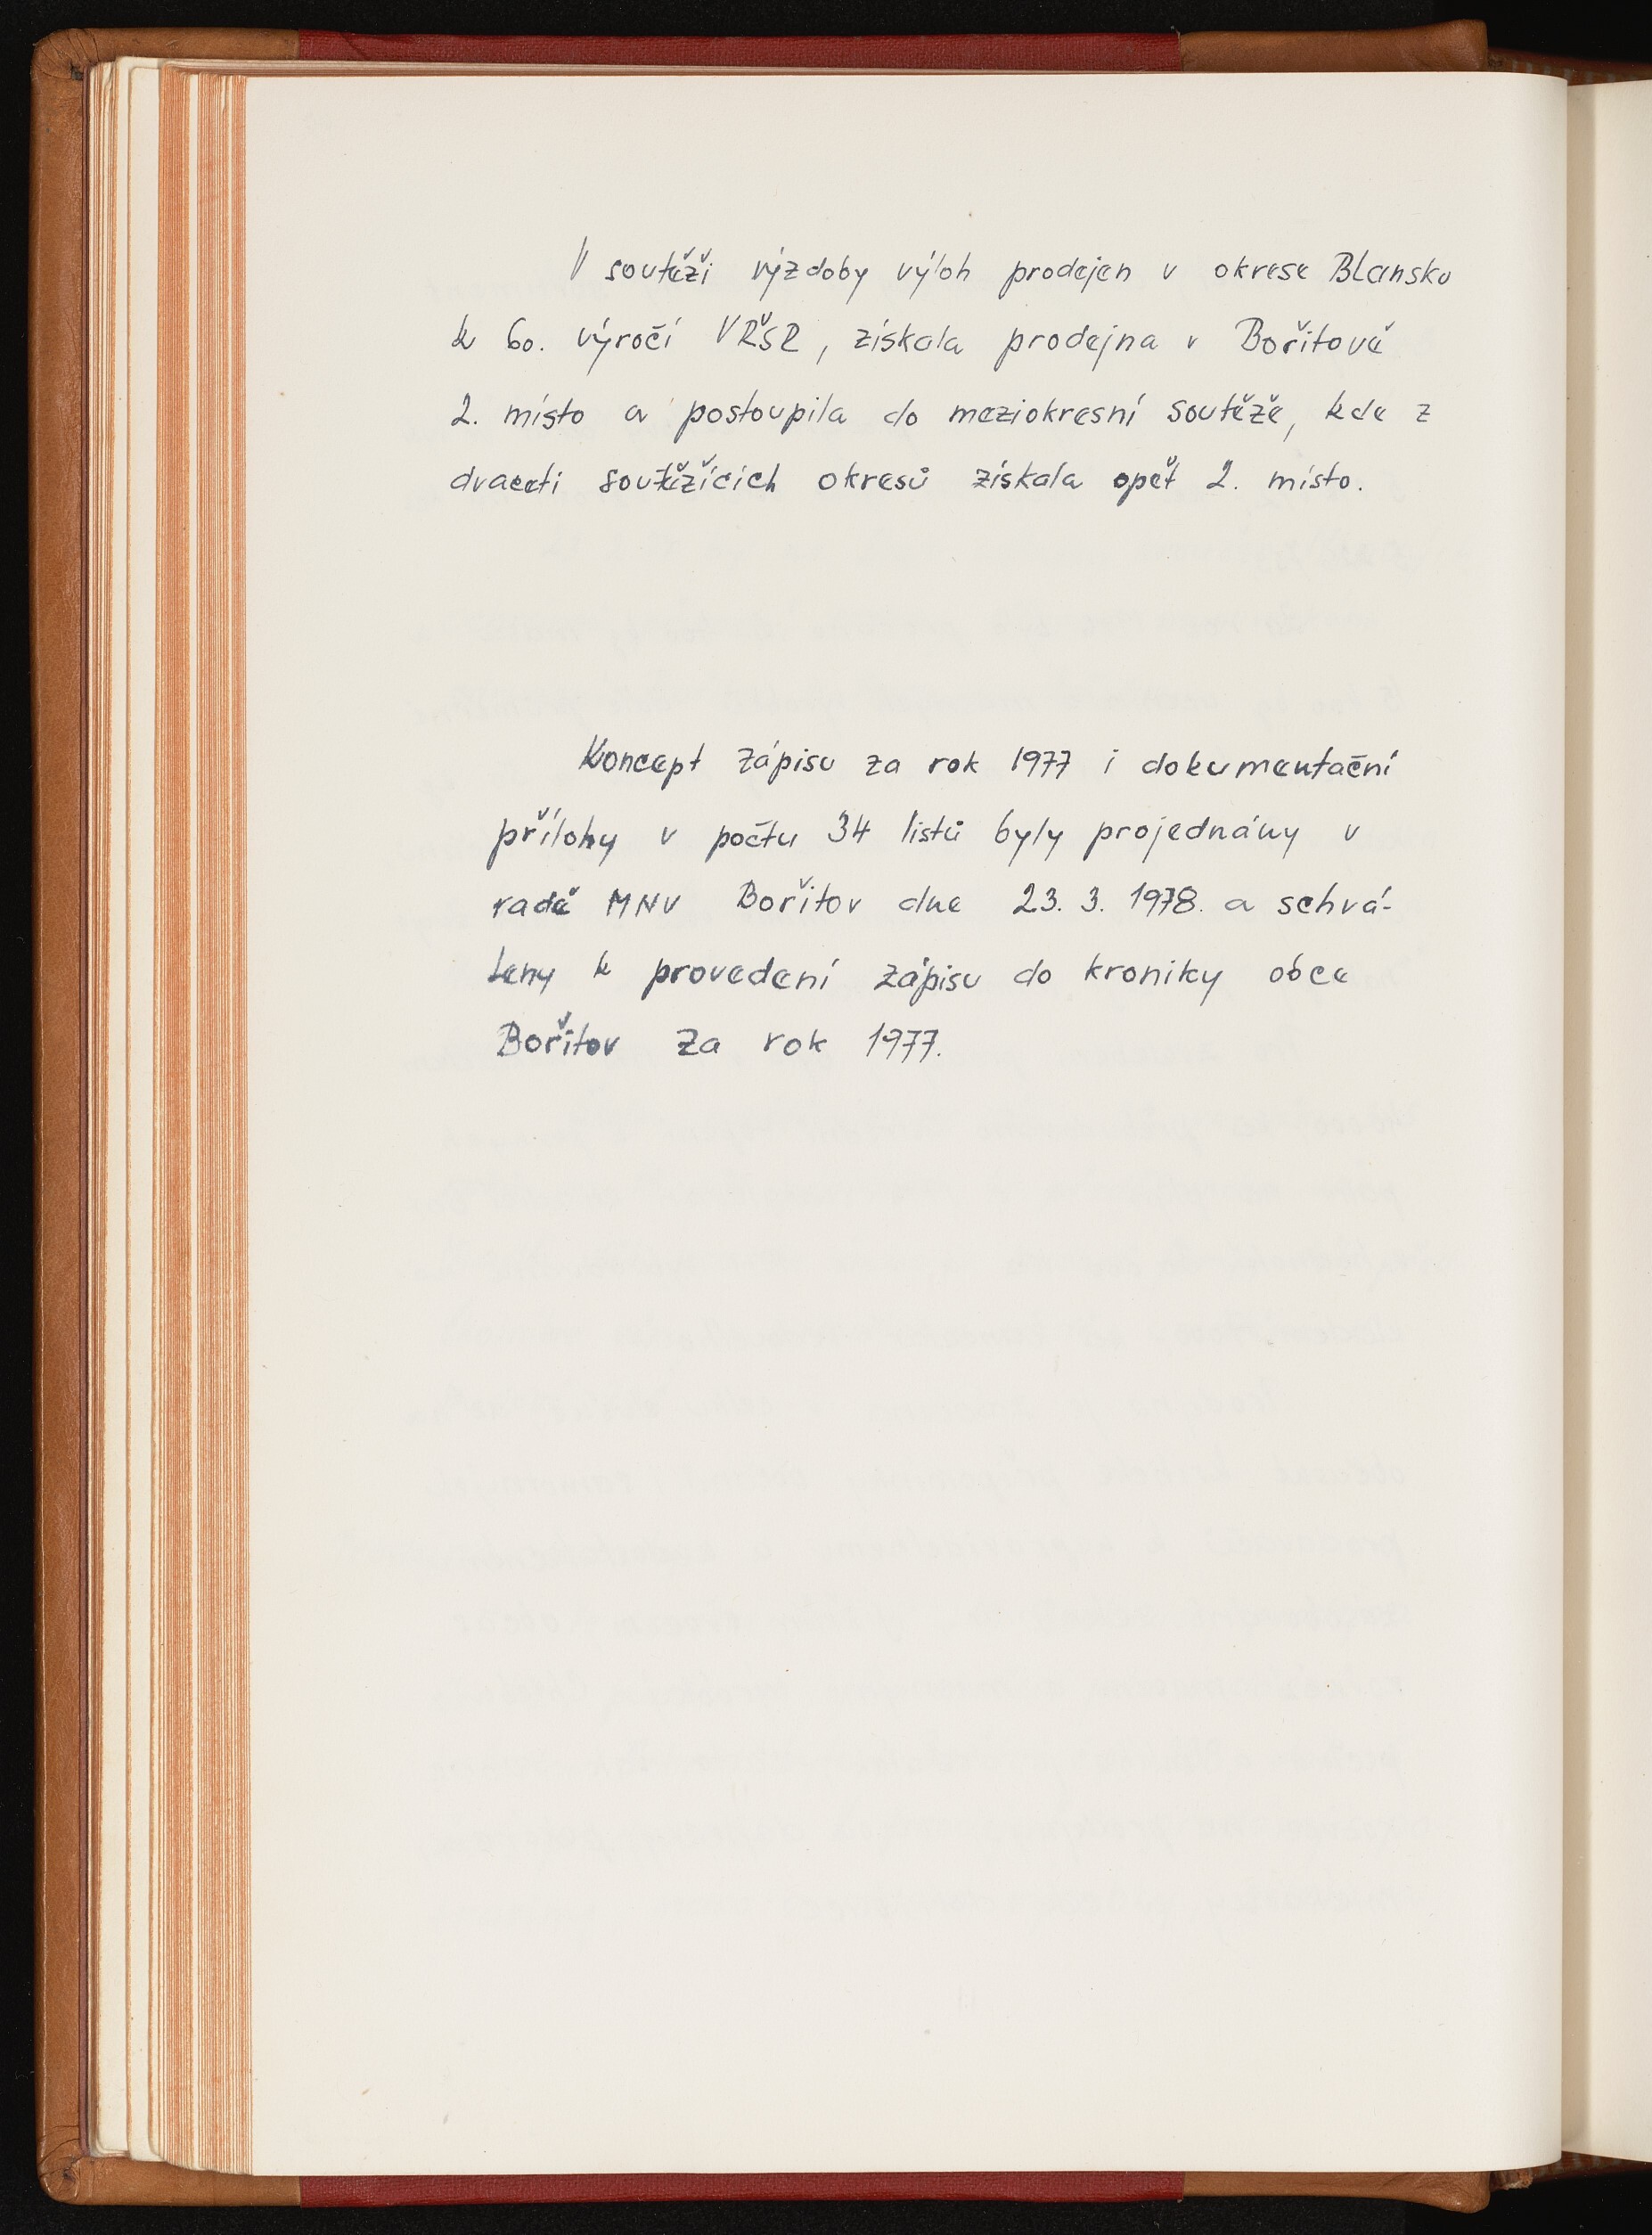 V soutěži výzdoby výloh prodejen v okrese Blansko
k 60. výročí VŘSR, získala prodejna v Bořitově
2. místo a postoupila do meziokresní soutěže, kde z
dvaceti soutěžících okresů získala opět 2. místo.
Koncept zápisu za rok 1977 i dokumentační
přílohy v počtu 34 listů byly projednány v
radě MNV Bořitov dne 23. 3. 1978. a schvá-
leny k provedení zápisu do kroniky obce
Bořitov za rok 1977.